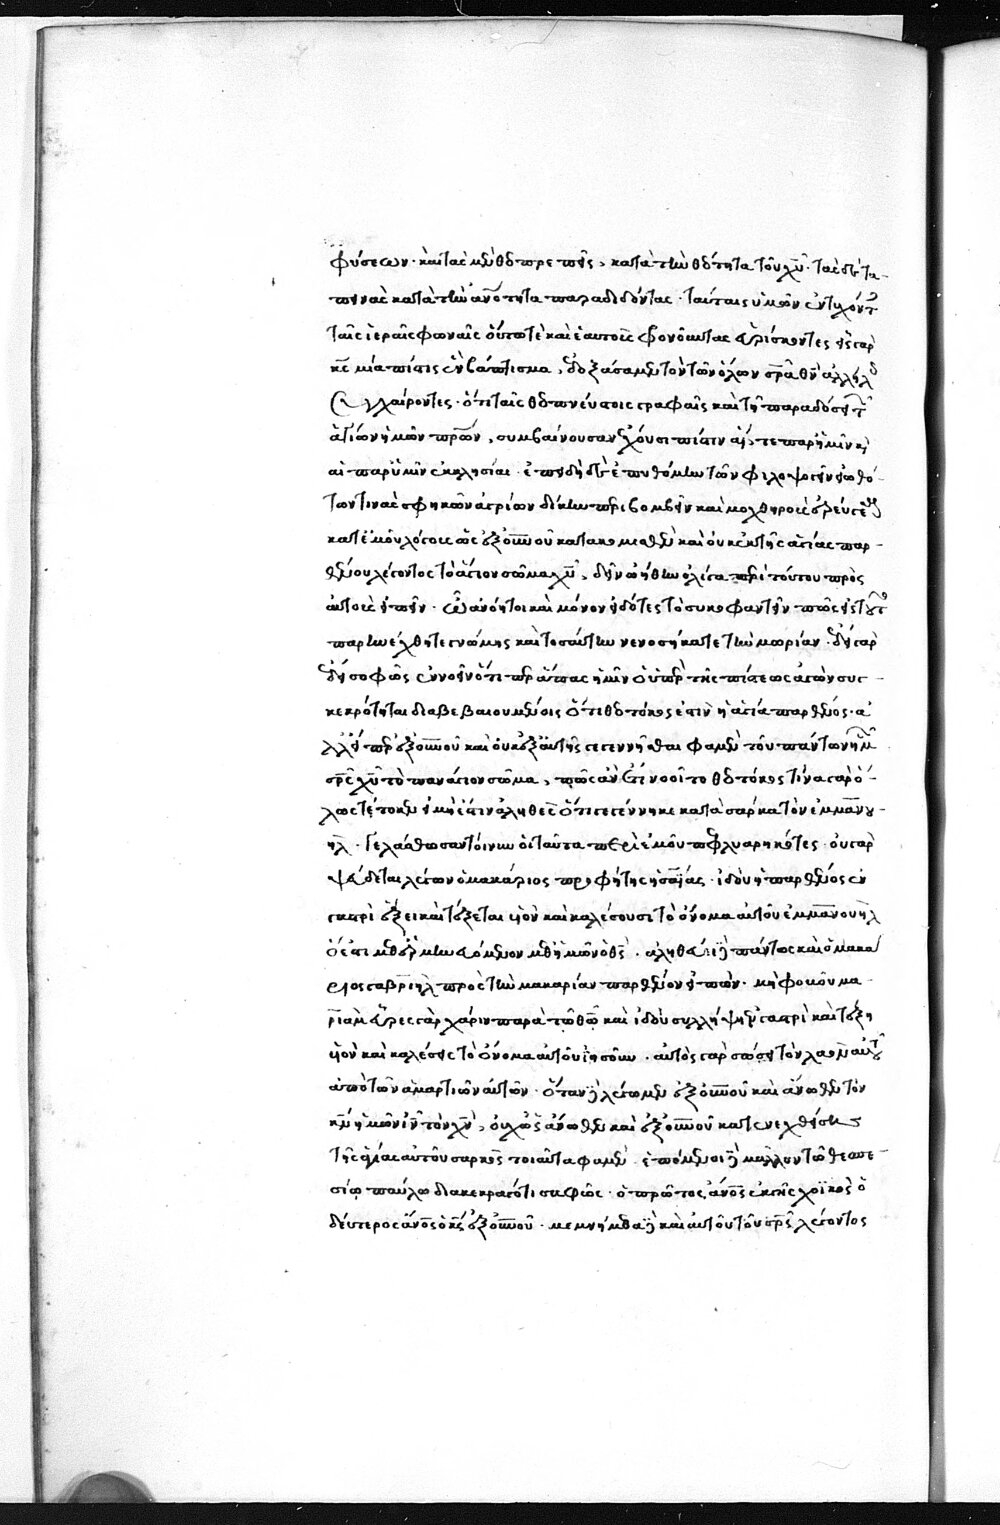 φύσεων· καὶ τὰς μὲν θεοπρεπεῖς, κατὰ τὴν θεότητα τοῦ χῦ· τὰς δὲ τα-
πεινὰς κατὰ τὴν ἀνότητα παραδιδόντας· ταύταις ὑμῶν ἐντυχόντες
ταῖς ἱεραῖς φωναῖς οὕτω τὲ καὶ ἑαυτοὺς φρονοῦντας εὑρίσκοντες· εἷς γὰρ
κς μία πίστις ἓν βάπτισμα, ἐδοξάσαμεν τὸν τῶν ὅλων σρα θν ἀλλήλοις
συγχαίροντες· ὅτι ταῖς θεοπνεύστοις γραφαῖς καὶ τῇ παραδόσει τῶν
ἁγίων ἡμῶν πρων, συμβαίνουσαν ἔχουσι πίστιν αἵ τε παρ' ἡμῖν καὶ
αἱ παρ' ὑμῖν ἐκκλησίαι· ἐπειδὴ δὲ ἐπυθόμην τῶν φιλοψογεῖν εἰωθό-
των τινὰς σφηκῶν ἀγρίων δίκην περιβομβεῖν καὶ μοχθηροὺς ἐρεύγεσθαι
κατ' ἐμοῦ λόγους ὡς ἐξ οὐνοῦ κατακομισθὲν καὶ οὐκ ἐκ τῆς ἁγίας παρ-
θένου λέγοντος τὸ ἅγιον σῶμα χυ, δεῖν ᾠήθην ὀλίγα περὶ τούτου πρὸς
αὐτοὺς εἰπεῖν· ὦ ἀνόητοι καὶ μόνον εἰδότες τὸ συκοφαντεῖν πῶς εἰς τοῦτο
παρηνέχθητε γνώμης καὶ τοσαύτην νενοσήκατε τὴν μωρίαν· ἔδει γὰρ
ἔδει σοφῶς ἐννοεῖν ὅτι πᾶς ἡμῖν ὁ ὑπὲρ τῆς πίστεως ἀγὼν συγ-
κεκρότηται διαβεβαιουμένοις ὅτι θεοτόκος ἐστὶν ἡ ἁγία παρθένος· ἀ
λλ' εἴπερ ἐξ οὐνοῦ καὶ οὐκ ἐξ αὐτῆς γεγεννῆσθαι φαμὲν τοῦ πάντων ἡμῶν
σρς χυ τὸ πανάγιον σῶμα, πῶς ἂν ἔτι νοοῖτο θεοτόκος τίνα γὰρ ὅ-
λως τέτοκεν εἰ μή ἐστιν ἀληθὲς ὅτι γεγέννηκε κατὰ σάρκα τὸν ἐμμανου
ήλ· Γελάσθωσαν τοίνυν οἱ ταῦτα περὶ ἐμοῦ πεφλυαρηκότες· οὐ γὰρ
ψεύδεται λέγων ὁ μακάριος προφήτης ἡσαΐας· ἰδοὺ ἡ παρθένος ἐν
γαστρὶ ἕξει καὶ τέξεται υἱὸν καὶ καλέσουσι τὸ ὄνομα αὐτοῦ ἐμμανουήλ
ὅ ἐστι μεθερμηνευόμενον μεθ' ἡμῶν ὁ θς· ἀληθεύει δὲ πάντως καὶ ὁ μακά
ριος γαβριὴλ πρὸς τὴν μακαρίαν παρθένον εἰπών· μὴ φοβοῦ μα-
ριὰμ εὗρες γὰρ χάριν παρὰ τῷ θῷ καὶ ἰδοὺ συλλήψῃ ἐν γαστρὶ καὶ τέξῃ
υἱὸν καὶ καλέσεις τὸ ὄνομα αὐτοῦ ἰησοῦν· αὐτὸς γὰρ σώσει τὸν λαὸν αὐτοῦ
ἀπὸ τῶν ἁμαρτιῶν αὐτῶν· ὅταν δὲ λέγωμεν ἐξ οὐνοῦ καὶ ἄνωθεν τὸν
κν ἡμῶν ιν τὸν χν, οὐχ ὡς ἄνωθεν καὶ ἐξ οὐνοῦ κατενεχθείσης
τῆς ἁγίας αὐτοῦ σαρκὸς τοιαῦτα φαμέν· ἑπόμενοι δὲ μᾶλλον τῷ θεσπε-
σίῳ παύλῳ διακεκραγότι σαφῶς· ὁ πρῶτος ἄνος ἐκ γῆς χοϊκὸς ὁ
δεύτερος ἄνος ὁ κς ἐξ οὐνοῦ· μεμνήμεθα δὲ καὶ αὐτοῦ τοῦ σρς λέγοντος